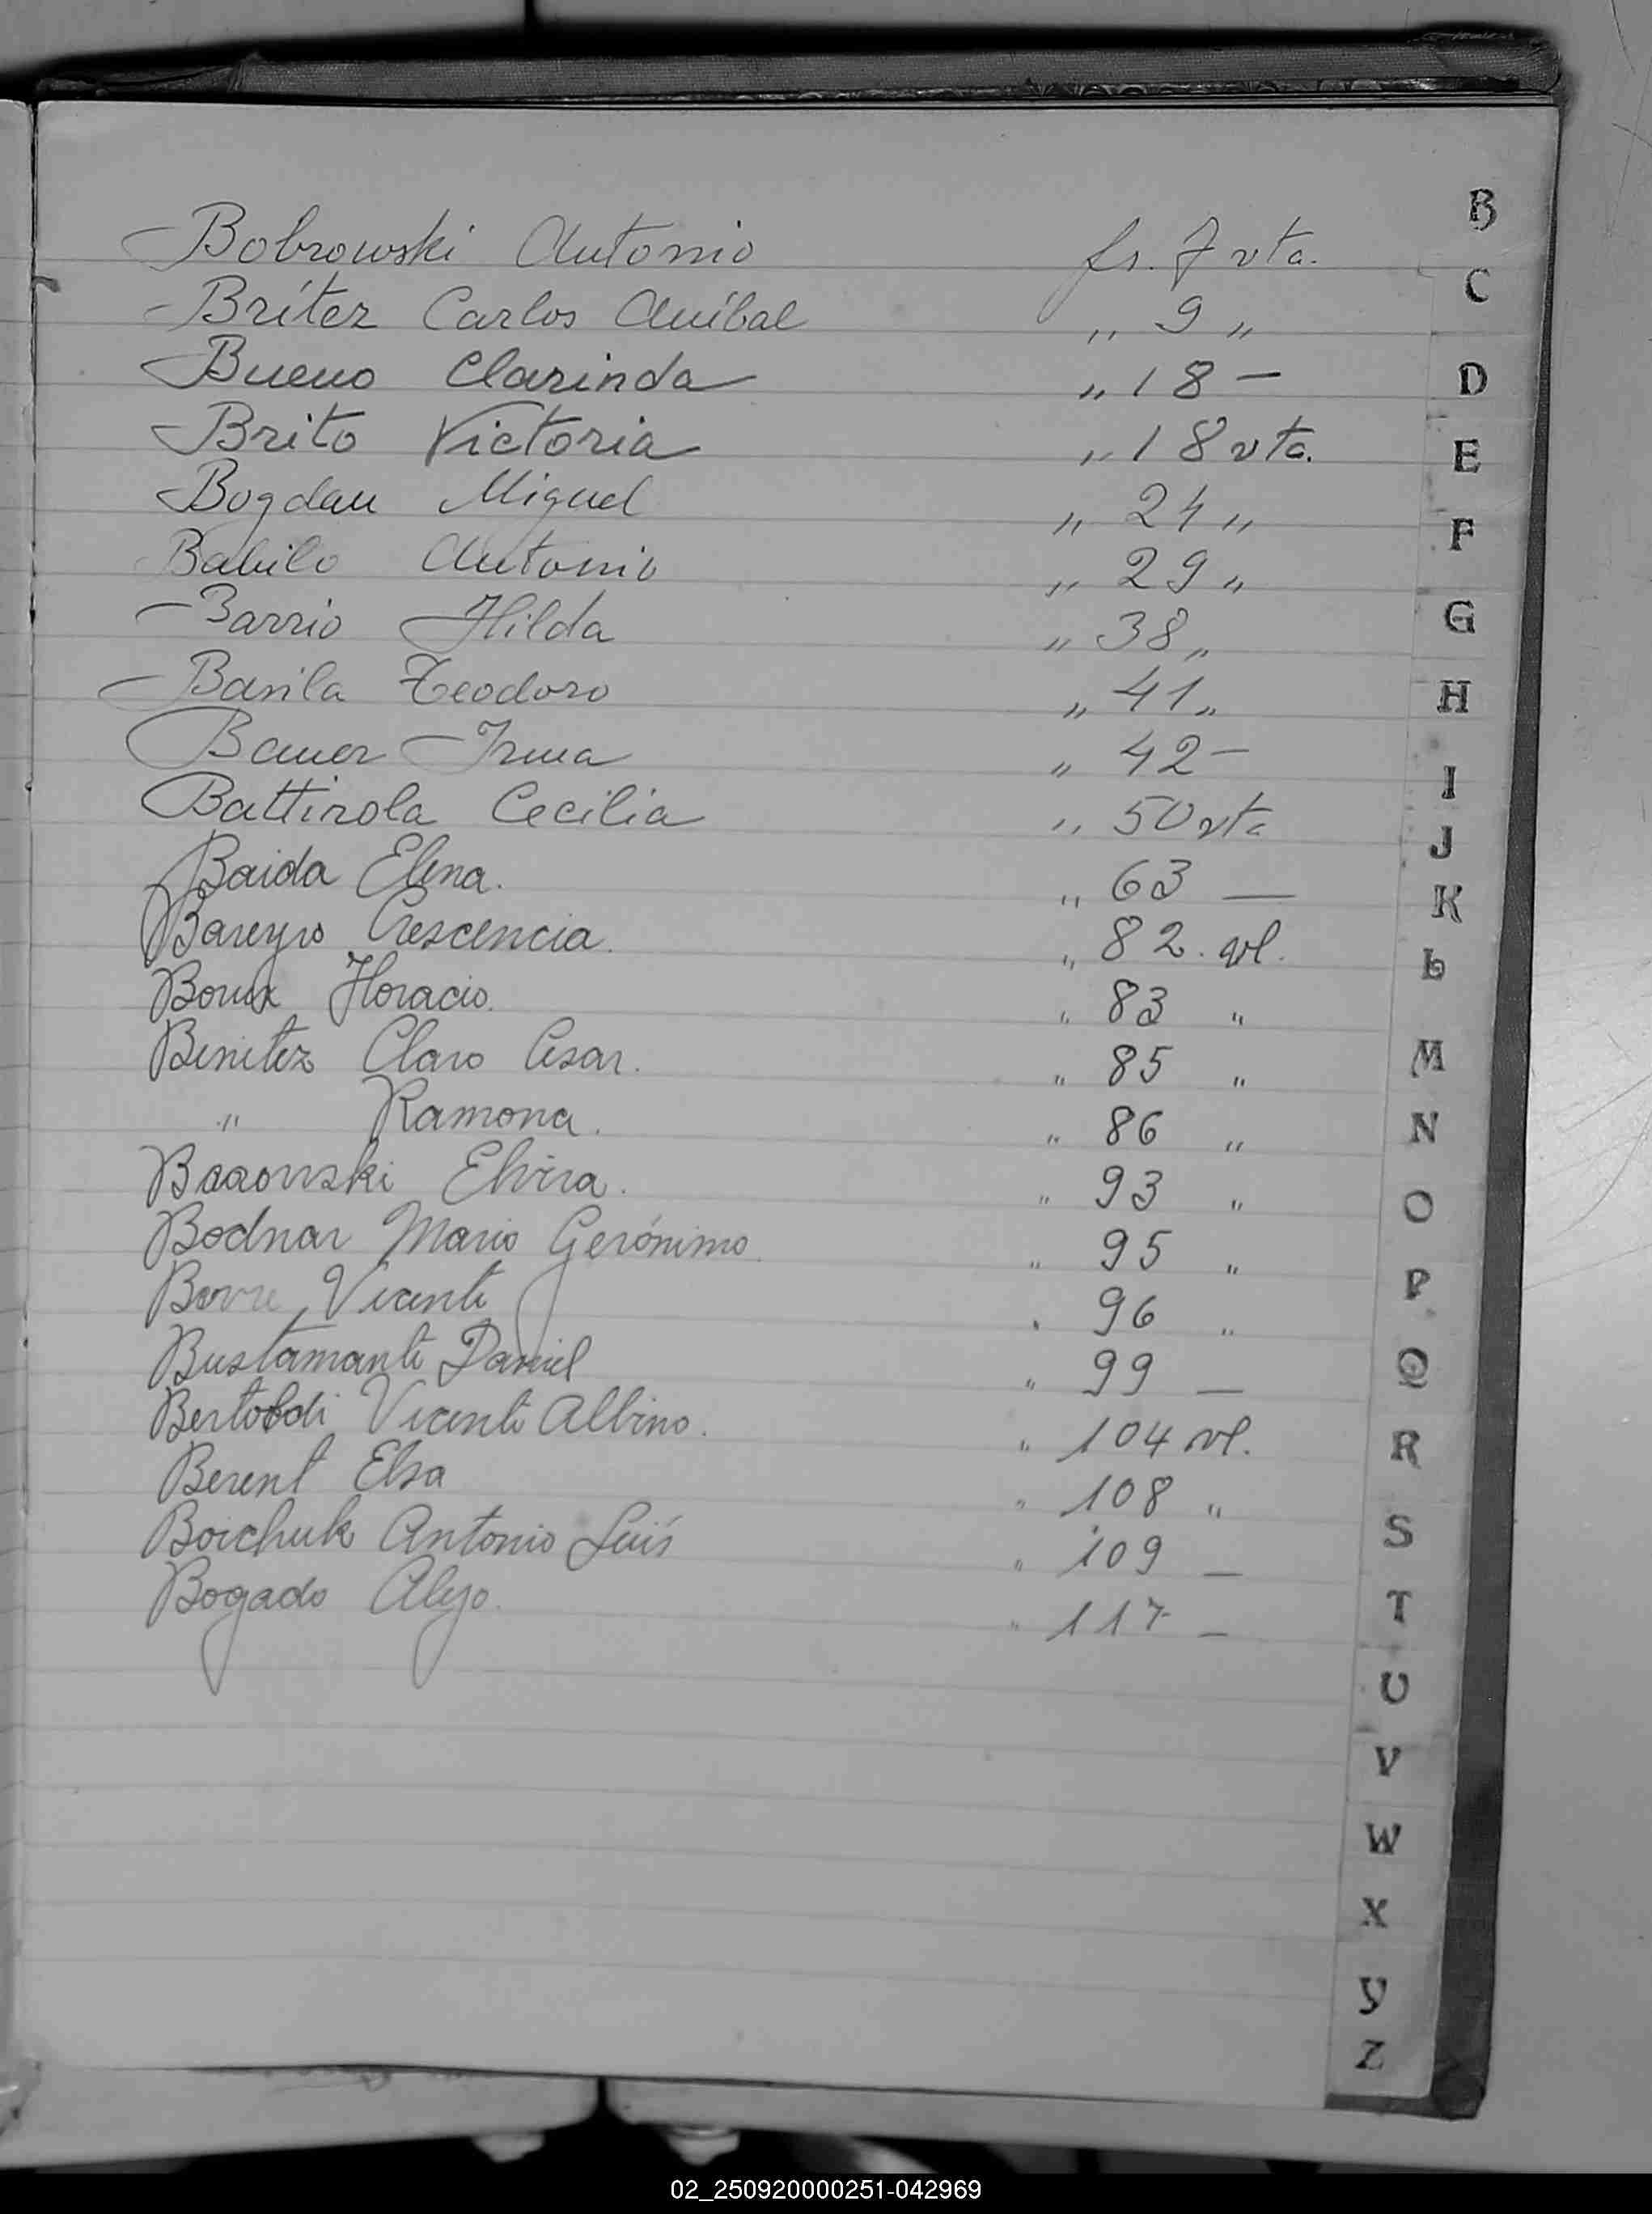 Bobrowski Antonio fs. 7 vta.
Brítez Carlos Aníbal „ 9 „
Bueno Clarinda „ 18 —
Brito Victoria „ 18 vta.
Bogdan Miguel „ 24 „
Antonio „ 29 „
Barrio Hilda „ 38 „
Teodoro „ 41 „
Bauer Irma „ 42 —
Battirola Cecilia „ 50 vta
Baida Elena. „ 63 —
Bareyro Crescencia. „ 82. vl.
Horacio. „ 83 „
Benitez Claro Cesar. „ 85 „
„ Ramona. „ 86 „
Elvira. „ 93 „
Bodnar Mario Gerónimo. „ 95 „
Vicente „ 96 „
Bustamante Daniel „ 99 —
Bertoldi Vicente Albino. „ 104 vl.
Berent Elsa „ 108 „
Boichuk Antonio Luís „ 109 —
Bogado Alejo. „ 117 —
B
C
D
E
F
G
H
I
J
K
L
M
N
O
P
Q
R
S
T
U
V
W
X
Y
Z
02_250920000251-042969